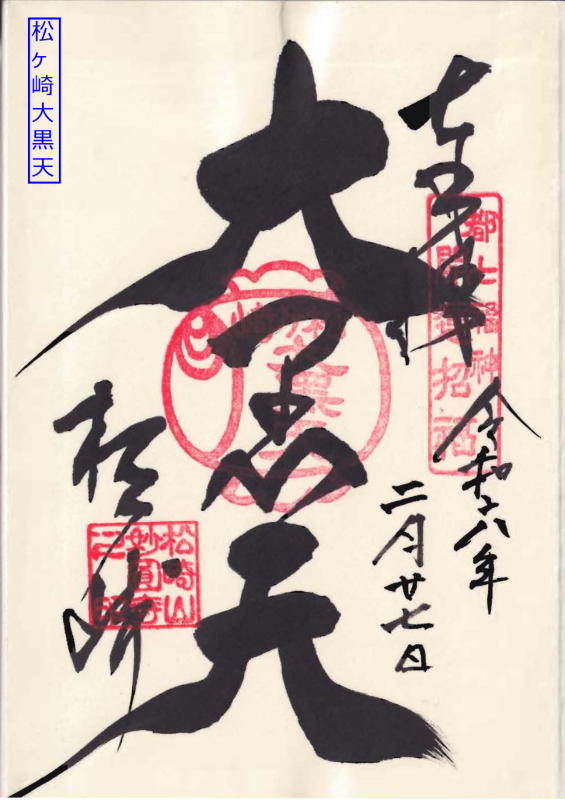 松ヶ崎大黒天
奉拝
都七福神
開運招福
令和六年
二月廿七日
大黒天
松ヶ崎
松崎山
妙圓寺
之印